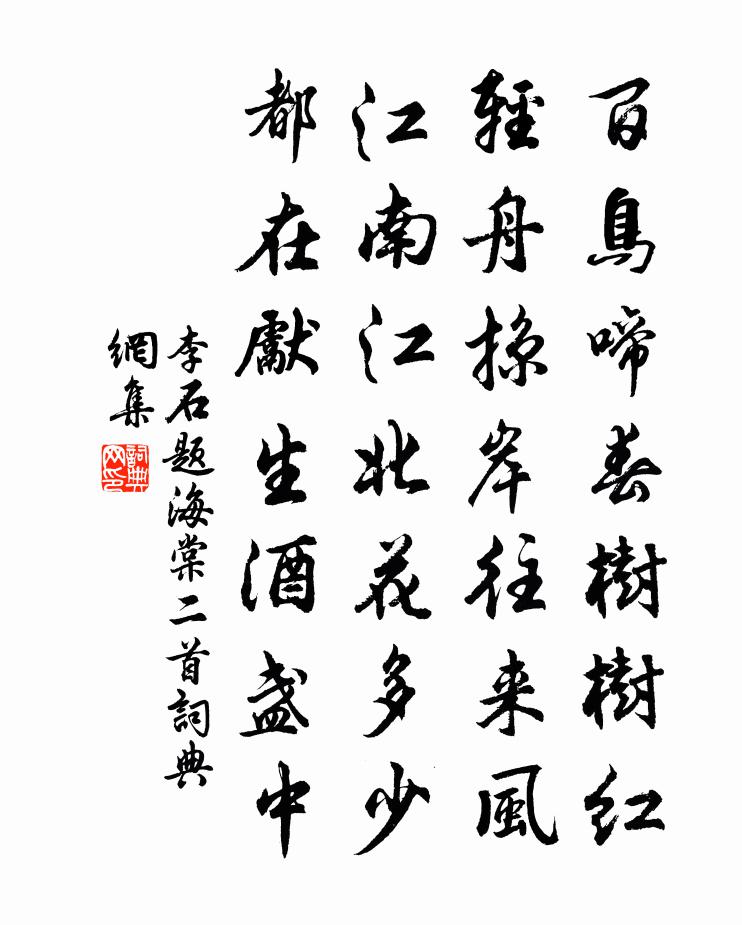 百鳥啼春樹樹紅
輕舟掠岸往来風
江南江北花多少
都在獻生酒盏中
李石题海棠二首詞典
網集
詞典
网印